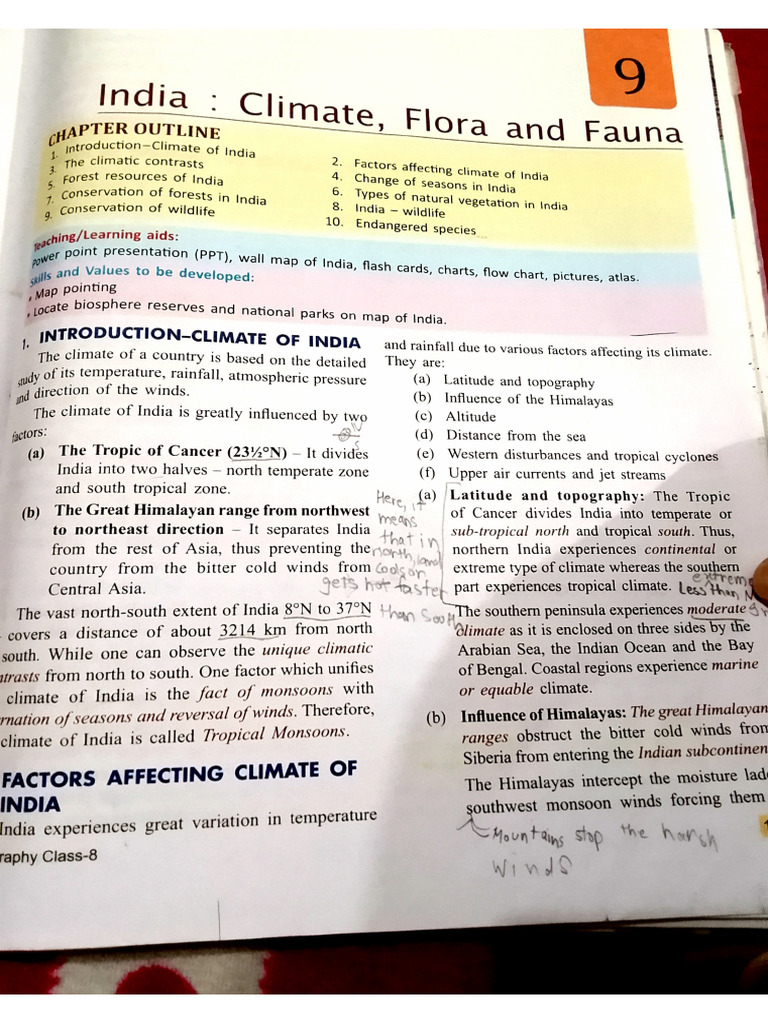 9
India : Climate, Flora and Fauna
CHAPTER OUTLINE
1. Introduction–Climate of India
2. Factors affecting climate of India
3. The climatic contrasts
4. Change of seasons in India
5. Forest resources of India
6. Types of natural vegetation in India
7. Conservation of forests in India
8. India – wildlife
9. Conservation of wildlife
10. Endangered species
Teaching/Learning aids:
Power point presentation (PPT), wall map of India, flash cards, charts, flow chart, pictures, atlas.
Skills and Values to be developed:
• Map pointing
• Locate biosphere reserves and national parks on map of India.
1. INTRODUCTION–CLIMATE OF INDIA
The climate of a country is based on the detailed
study of its temperature, rainfall, atmospheric pressure
and direction of the winds.
The climate of India is greatly influenced by two
factors:
N
S
(a) The Tropic of Cancer (23½°N) – It divides
India into two halves – north temperate zone
and south tropical zone.
(b) The Great Himalayan range from northwest
to northeast direction – It separates India
from the rest of Asia, thus preventing the
country from the bitter cold winds from
Central Asia.
The vast north-south extent of India 8°N to 37°N
covers a distance of about 3214 km from north
south. While one can observe the unique climatic
ntrasts from north to south. One factor which unifies
climate of India is the fact of monsoons with
rnation of seasons and reversal of winds. Therefore,
climate of India is called Tropical Monsoons.
FACTORS AFFECTING CLIMATE OF
INDIA
India experiences great variation in temperature
raphy Class-8
and rainfall due to various factors affecting its climate.
They are:
(a) Latitude and topography
(b) Influence of the Himalayas
(c) Altitude
(d) Distance from the sea
(e) Western disturbances and tropical cyclones
(f) Upper air currents and jet streams
(a) Latitude and topography: The Tropic
of Cancer divides India into temperate or
sub-tropical north and tropical south. Thus,
northern India experiences continental or
extreme type of climate whereas the southern
part experiences tropical climate.
extreme
Less than N
Here, it
means
that in
north, land
cools or
gets hot faster
than South
The southern peninsula experiences moderate
climate as it is enclosed on three sides by the
Arabian Sea, the Indian Ocean and the Bay
of Bengal. Coastal regions experience marine
or equable climate.
(b) Influence of Himalayas: The great Himalayan
ranges obstruct the bitter cold winds from
Siberia from entering the Indian subcontinen
The Himalayas intercept the moisture lade
southwest monsoon winds forcing them
Mountains stop the harsh
winds